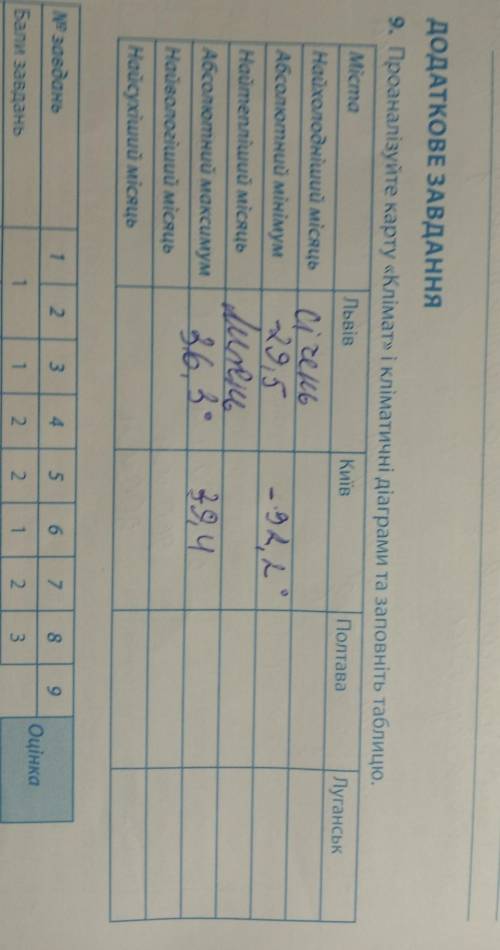 ДОДАТКОВЕ ЗАВДАННЯ
9. Проаналізуйте карту «Клімат» і кліматичні діаграми та заповніть таблицю.
Міста Львів Київ Полтава Луганськ
Найхолодніший місяць Січень
Абсолютний мінімум -29,5 -32,2°
Найтепліший місяць Липень
Абсолютний максимум 36,3° 39,4
Найвологіший місяць
Найсухіший місяць
№ завдань 1 2 3 4 5 6 7 8 9 Оцінка
Бали завдань 1 1 2 2 1 2 3